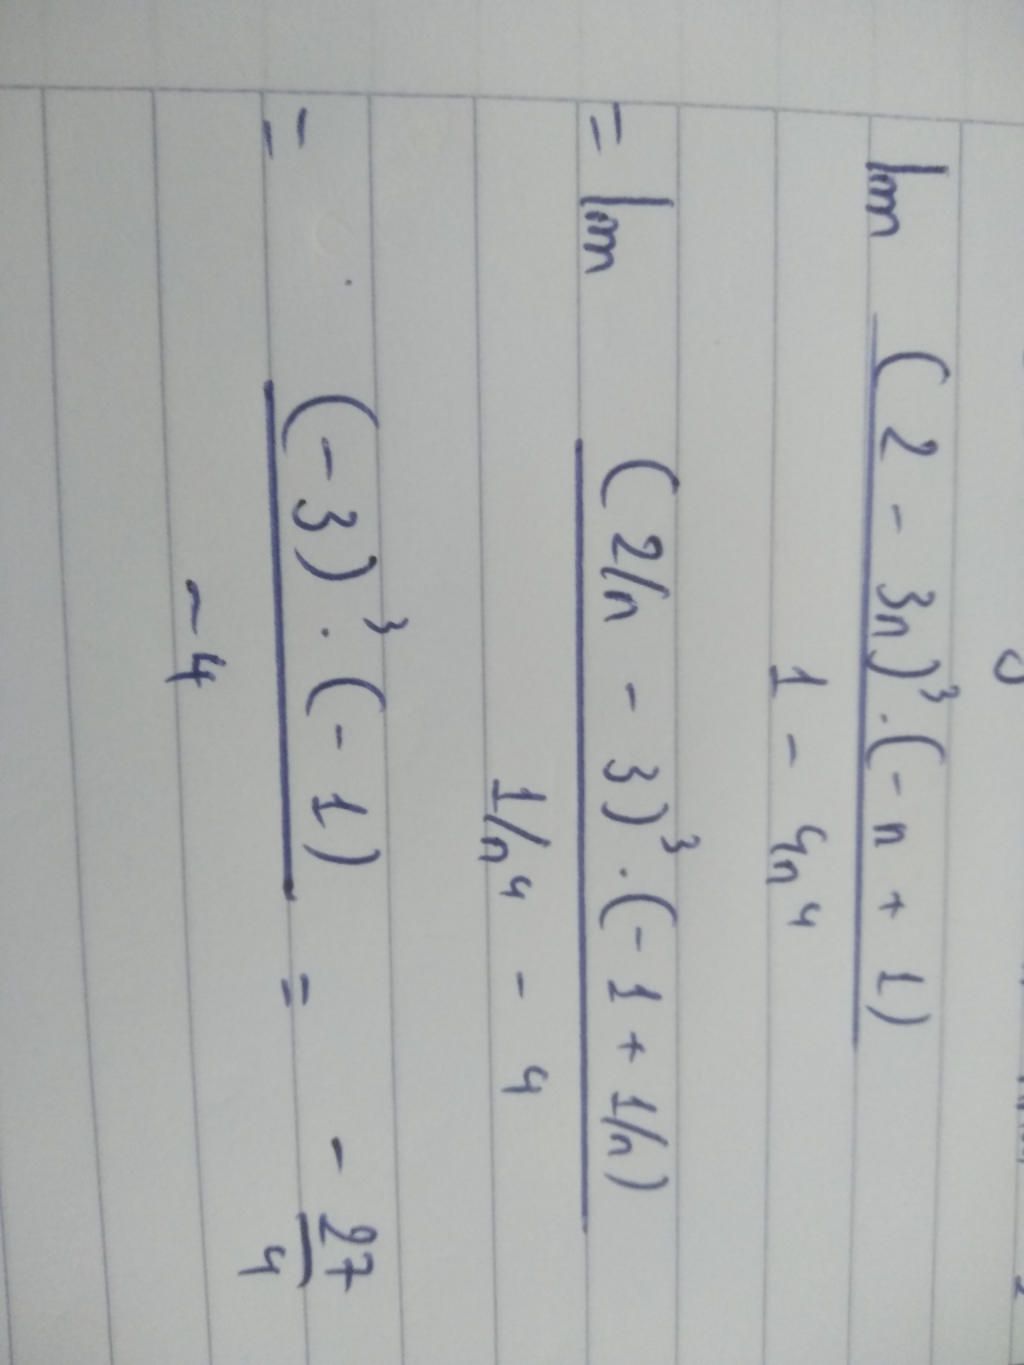 lim (2 - 3n)³.(-n + 1)
1 - 4n⁴
= lim (2/n - 3)³.(-1 + 1/n)
1/n⁴ - 4
= (-3)³.(-1) = - 27
-4 4